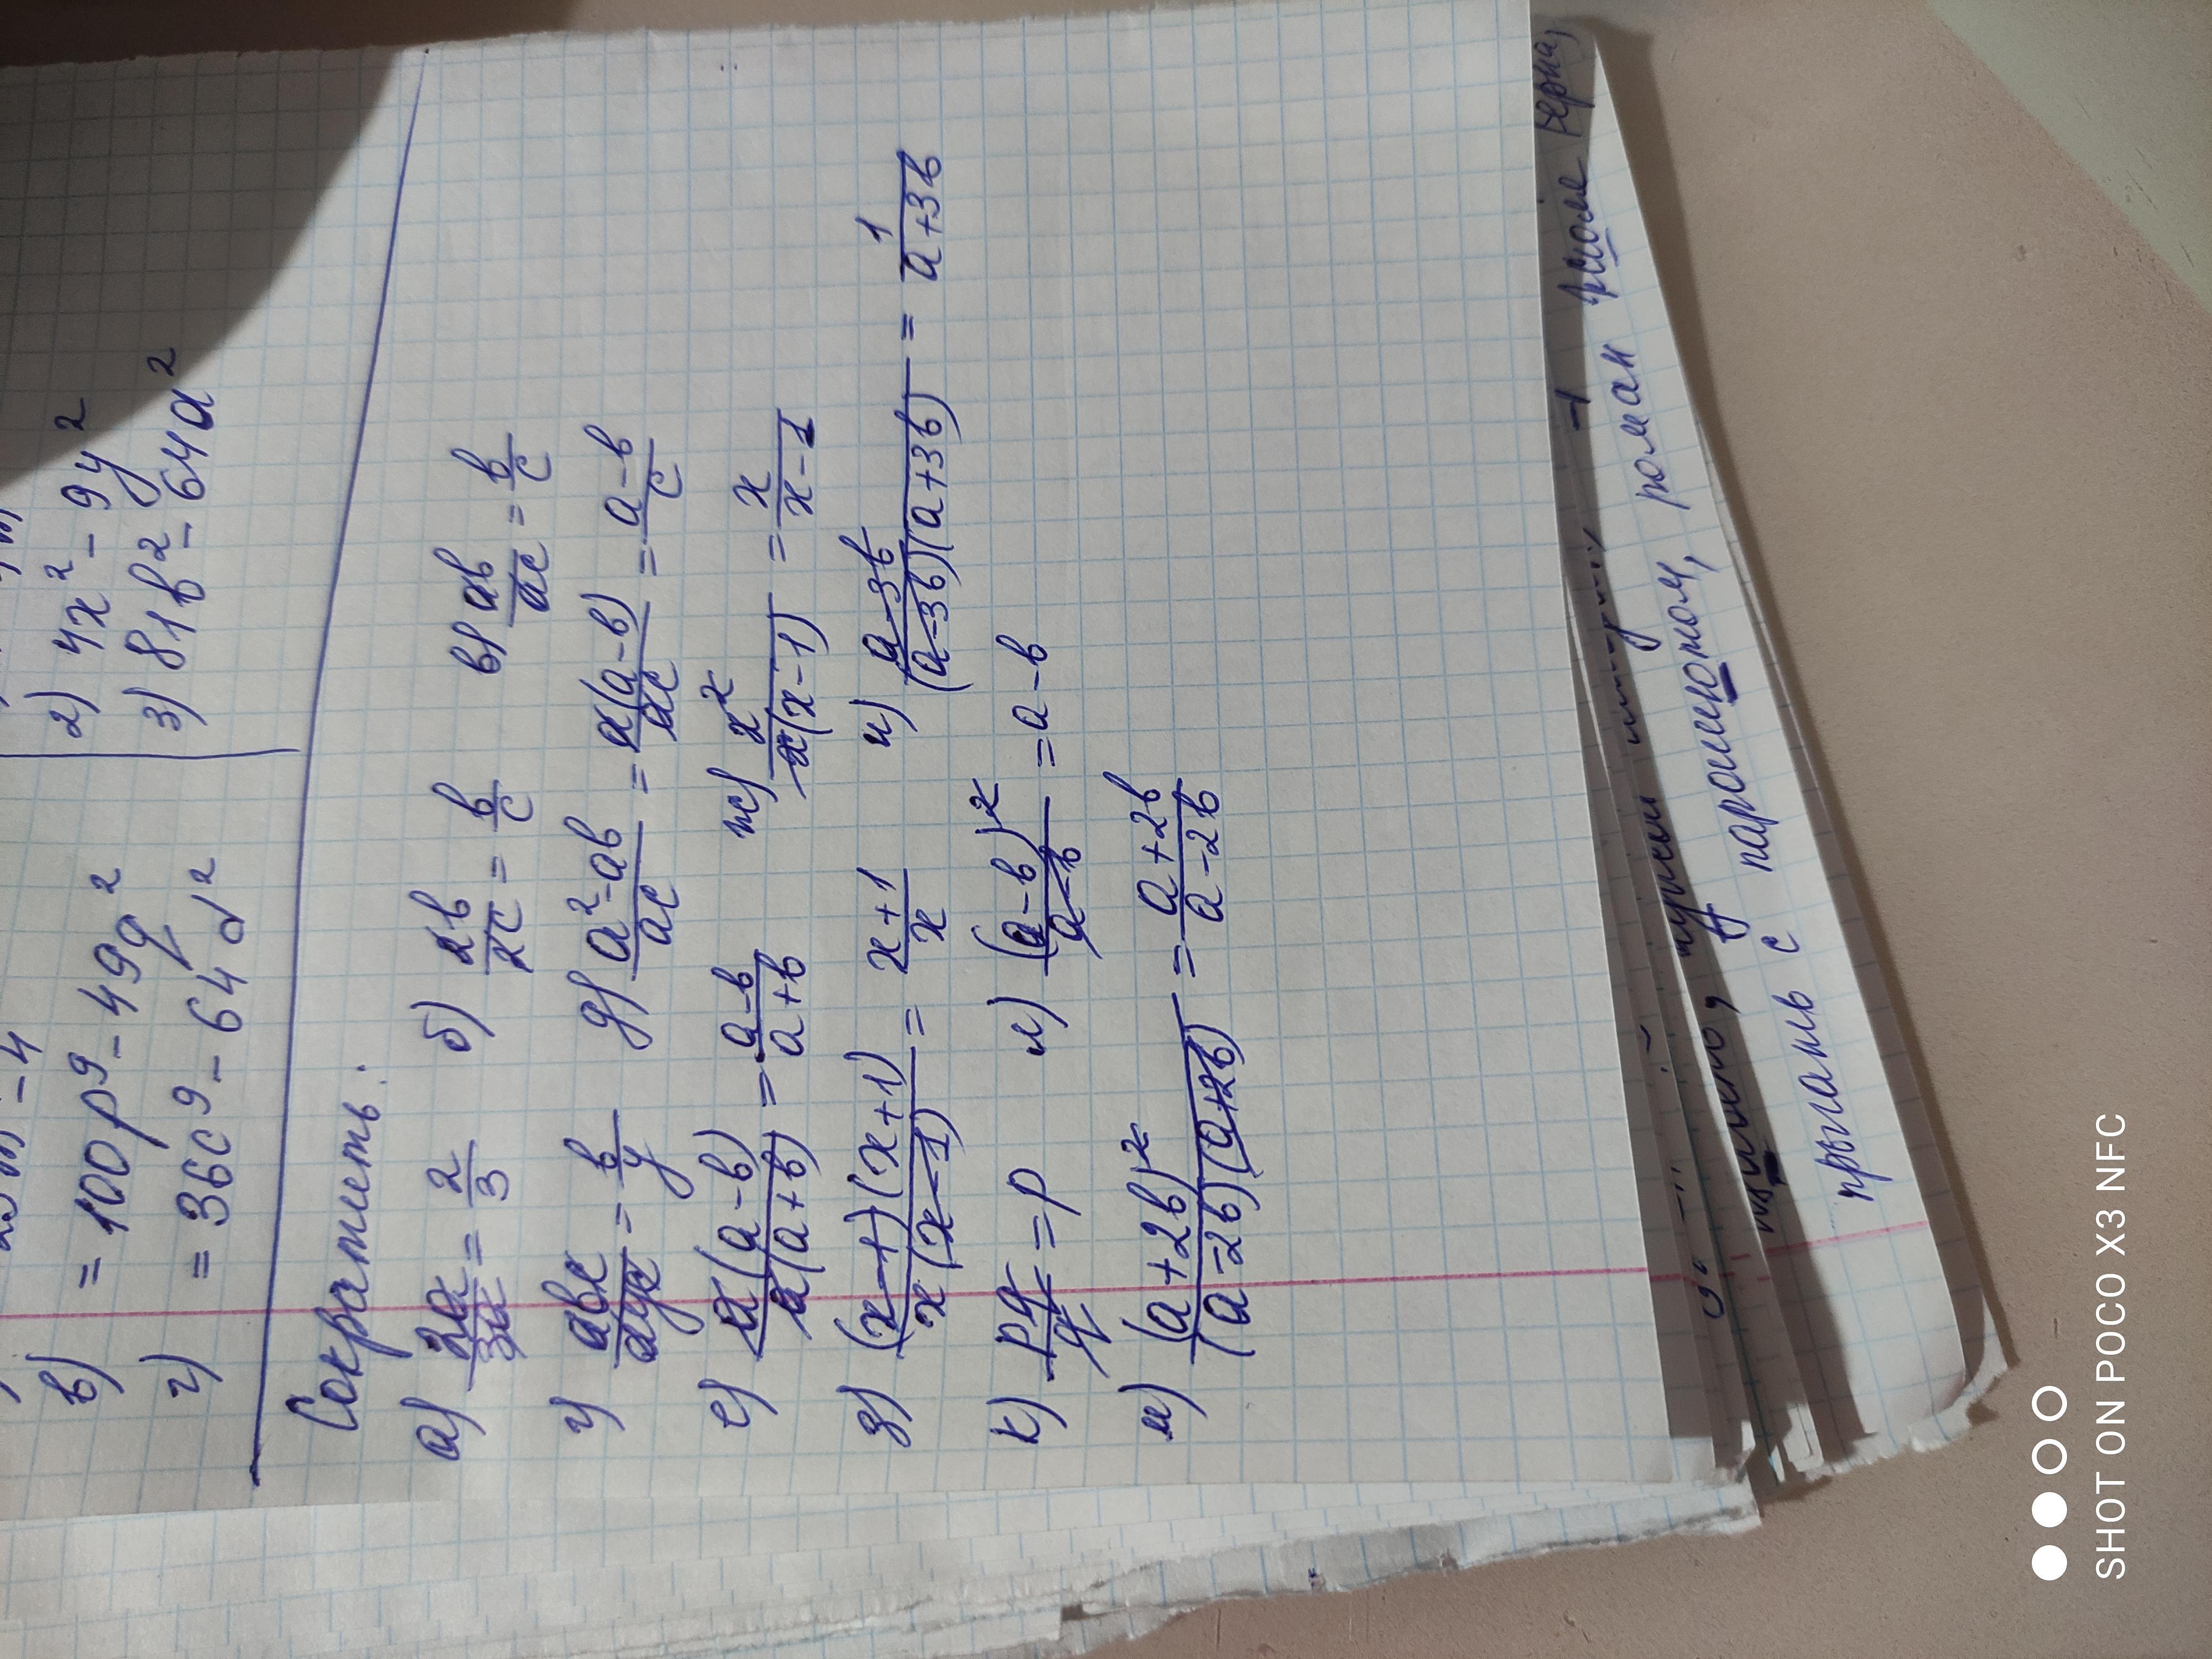 в) = 100p⁹ - 49q²
г) = 36c⁹ - 64d²
2) 4x² - 9y²
3) 81b² - 64a²
Сократить:
а) 2x/3x = 2/3 б) xb/xc = b/c в) ab/ac = b/c
г) abx/ayx = b/y д) (a² - ab)/ac = a(a-b)/ac = (a-b)/c
е) x(a-b)/x(a+b) = (a-b)/(a+b) ж) x²/x(x-1) = x/(x-1)
з) (x-1)(x+1)/x(x-1) = (x+1)/x и) (a-3b)/(a-3b)(a+3b) = 1/(a+3b)
к) pq/q = p л) (a-b)²/(a-b) = a-b
м) (a+2b)²/(a-2b)(a+2b) = (a+2b)/(a-2b)
роман
прыгань с парашюном,
SHOT ON POCO X3 NFC